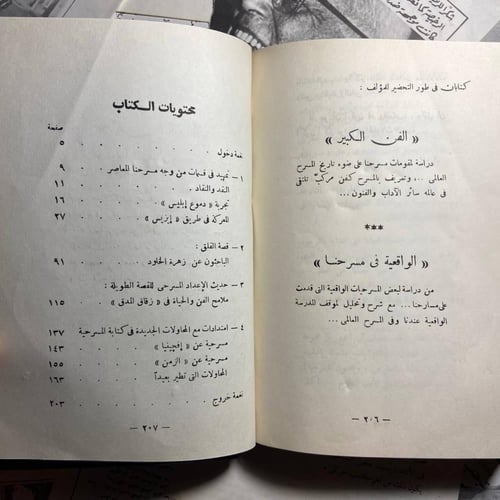 كتابان فى طور التحضير للمؤلف :
« الفن الكبير »
دراسة لمقومات مسرحنا على ضوء تاريخ المسرح
العالمى ... وتعريف بالمسرح كفن مركب تلتقى
فى عالمه سائر الآداب والفنون .
***
« الواقعية فى مسرحنا »
من دراسة لبعض المسرحيات الواقعية التى قدمت
على مسارحنا ... مع شرح وتحليل لموقف المدرسة
الواقعية عندنا وفى المسرح العالمى .
— ٢٠٦ —
محتويات الكتاب
صفحة
نغمة دخول . . . . . ٥
١ – تمهيد فى قسمات من وجه مسرحنا المعاصر ٩
النقد والنقاد . . . . ١١
تجربة « دموع إبليس » . . . ١٦
المعركة فى طريق « إيزيس » . . ٢٧
٢ – قصة القلق :
الباحثون عن زهرة الخلود . . ٩١
٣ – حديث الإعداد المسرحى للقصة الطويلة :
ملامح الفن والحياة فى « زقاق المدق » . ١١٥
٤ – امتدادات مع المحاولات الجديدة فى كتابة المسرحية ١٣٧
مسرحية عن « إفجينيا » . . ١٤٣
مسرحية عن « الزمن » . . ١٥٥
المحاولات التى تطير بعيداً . . ١٦٣
نغمة خروج . . . . . ٢٠٣
— ٢٠٧ —